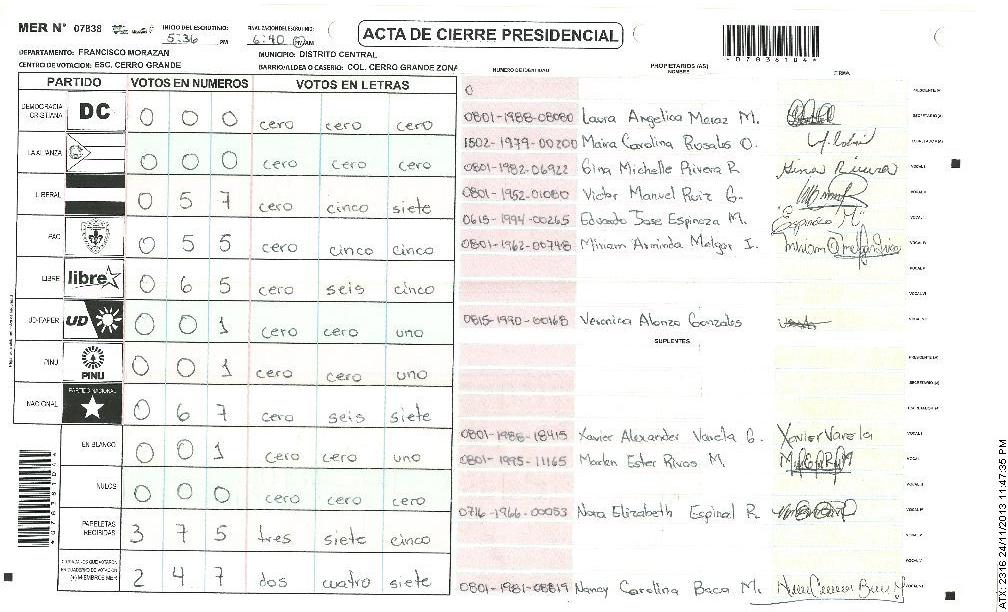 MER N° 07838 INICIO DEL ESCRUTINIO: 5:36 PM FINALIZACION DEL ESCRUTINIO: 6:40 PM/AM
ACTA DE CIERRE PRESIDENCIAL
DEPARTAMENTO: FRANCISCO MORAZAN MUNICIPIO: DISTRITO CENTRAL
CENTRO DE VOTACION: ESC. CERRO GRANDE BARRIO/ALDEA O CASERIO: COL. CERRO GRANDE ZONA
PARTIDO VOTOS EN NUMEROS VOTOS EN LETRAS
DEMOCRACIA CRISTIANA DC 0 0 0 cero cero cero
LA ALIANZA 0 0 0 cero cero cero
LIBERAL 0 5 7 cero cinco siete
PAC 0 5 5 cero cinco cinco
LIBRE libre 0 6 5 cero seis cinco
UD-FAPER UD 0 0 1 cero cero uno
PINU PINU 0 0 1 cero cero uno
NACIONAL PARTIDO NACIONAL 0 6 7 cero seis siete
EN BLANCO 0 0 1 cero cero uno
NULOS 0 0 0 cero cero cero
PAPELETAS RECIBIDAS 3 7 5 tres siete cinco
CIUDADANOS QUE VOTARON EN CUADERNO DE VOTACION (+) MIEMBROS MER 2 4 7 dos cuatro siete
NUMERO DE IDENTIDAD PROPIETARIOS (AS) NOMBRE FIRMA
PRESIDENTE (A)
0801-1988-08080 Laura Angelica Meraz M. SECRETARIO (A)
1502-1979-00200 Maira Carolina Rosales O.
0801-1982-06922 Gina Michelle Rivera R. Gina Rivera VOCAL I
0801-1952-01080 Victor Manuel Ruiz G.
0615-1994-00265 Eduardo Jose Espinoza M. Espinoza M.
0801-1962-00748 Miriam Arminda Melgar I.
0815-1990-00168 Veronica Alonzo Gonzales
SUPLENTES
PRESIDENTE (A)
SECRETARIO (A)
0801-1988-18415 Xavier Alexander Varela G. Xavier Varela
0801-1995-11165 Marlen Ester Rivas M.
0716-1966-00053 Nora Elizabeth Espinal R.
0801-1981-08819 Nancy Carolina Baca M.
ATX: 2316 24/11/2013 11:47:35 PM